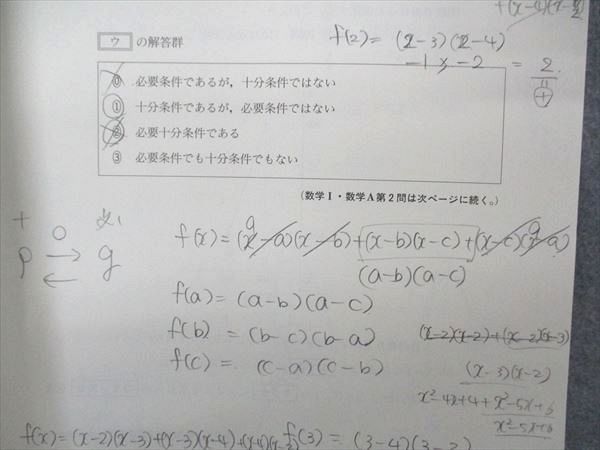 +(x-4)(x-2)
f(2) = (2-3)(2-4)
-1 × -2 = 2
+
ウ の解答群
⓪ 必要条件であるが，十分条件ではない
① 十分条件であるが，必要条件ではない
② 必要十分条件である
③ 必要条件でも十分条件でもない
(数学Ⅰ・数学A第2問は次ページに続く。)
+ 必
○
p → q
←
f(x) = (x-a)(x-b)+(x-b)(x-c)+(x-c)(x-a)
(a-b)(a-c)
f(a) = (a-b)(a-c)
f(b) = (b-c)(b-a)
f(c) = (c-a)(c-b)
(x-2)(x-2)+(x-2)(x-3)
(x-3)(x-2)
x²-4x+4+x²-5x+6
x²-5x+6
f(x) = (x-2)(x-3)+(x-3)(x-4)+(x-4)(x-2)
f(3) = (3-4)(3-2)